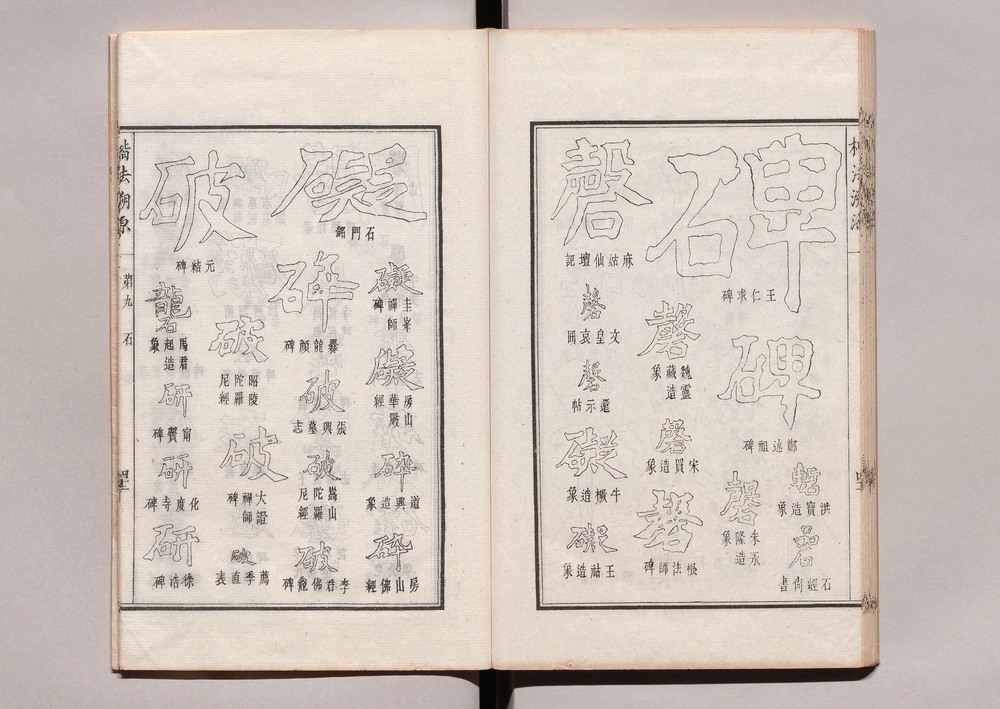 碑
王仁求碑
碑
鄭述祖碑
洪寶造象
碞
石經尚書
磬
朱永隆造象
磬
魏靈藏造象
磬
宋買造象
磬
根法師碑
磬
麻姑仙壇記
磬
文皇哀冊
磬
還示帖
礙
牛橛造象
礙
王祜造象
礙
石門銘
礙
圭峯禪師碑
礙
房山華嚴經
碎
道興造象
碎
房山佛經
碎
爨龍顏碑
破
張興墓志
破
嵩山陀羅尼經
破
李君佛龕碑
破
元結碑
破
昭陵陀羅尼經
破
大證禪師碑
破
薦季直表
礱
馬君起造象
研
甯贙碑
研
化度寺碑
研
徐浩碑
楷法溯源
第九
石